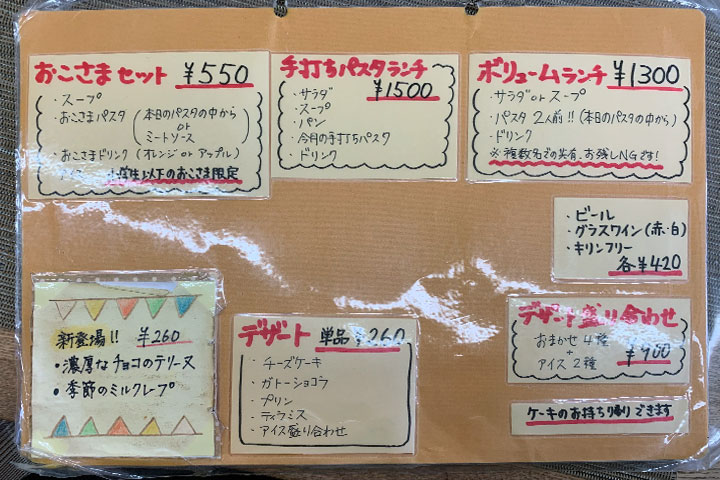 おこさまセット ¥550
・スープ
・おこさまパスタ (本日のパスタの中から or ミートソース)
・おこさまドリンク (オレンジ or アップル)
小学生以下のおこさま限定
手打ちパスタランチ
¥1500
・サラダ
・スープ
・パン
・今月の手打ちパスタ
・ドリンク
ボリュームランチ ¥1300
・サラダ or スープ
・パスタ 2人前!! (本日のパスタの中から)
・ドリンク
※複数名での共有、お残しNGです!
・ビール
・グラスワイン (赤・白)
・キリンフリー
各¥420
新登場!! ¥260
・濃厚なチョコのテリーヌ
・季節のミルクレープ
デザート 単品 ¥260
・チーズケーキ
・ガトーショコラ
・プリン
・ティラミス
・アイス盛り合わせ
デザート盛り合わせ
おまかせ4種
+
アイス2種
ケーキのお持ち帰りできます